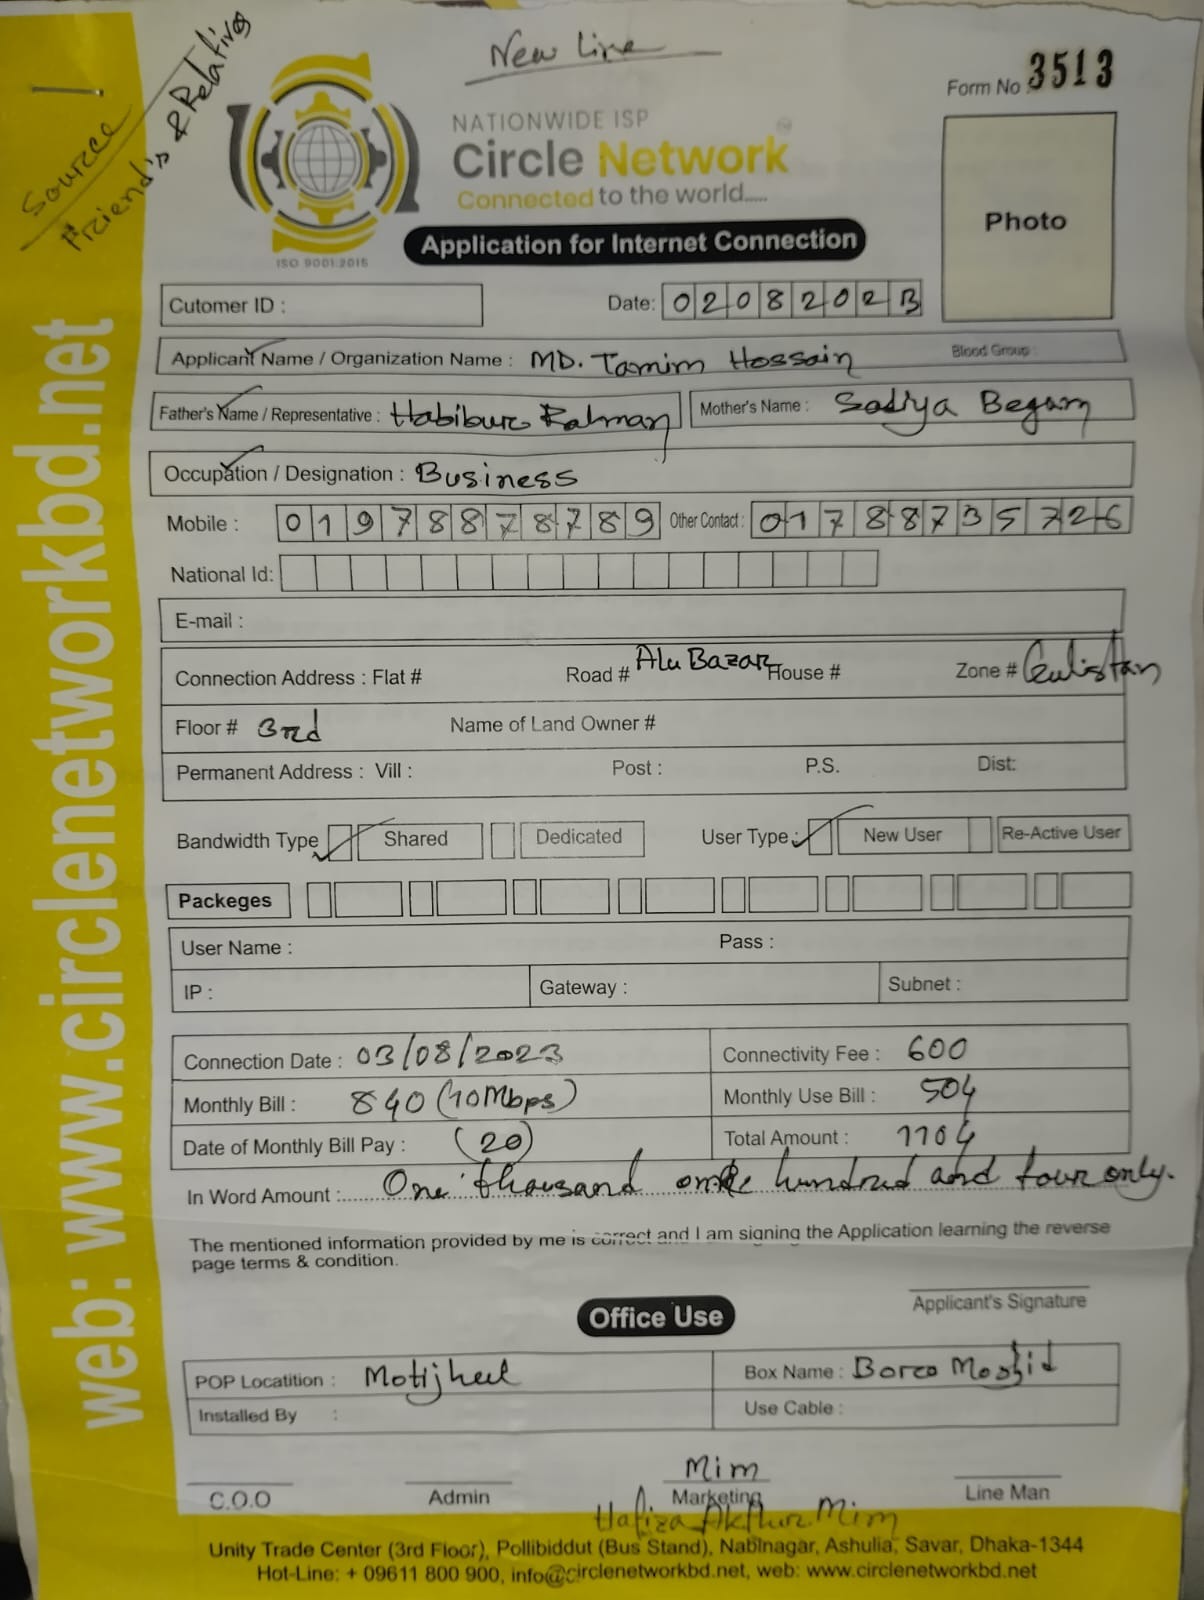 New Line
Source
Friend's & Relative
Form No 3513
NATIONWIDE ISP
Circle Network
Connected to the world.....
ISO 9001:2015
Application for Internet Connection
Photo
Cutomer ID :
Date: 02082023
Applicant Name / Organization Name : MD. Tamim Hossain Blood Group :
Father's Name / Representative : Habibur Rahman Mother's Name : Sadiya Begam
Occupation / Designation : Business
Mobile : 01978878789 Other Contact : 01788735726
National Id:
E-mail :
Connection Address : Flat # Road # Alu Bazar House # Zone # Gulistan
Floor # 3rd Name of Land Owner #
Permanent Address : Vill : Post : P.S. Dist:
Bandwidth Type Shared Dedicated User Type : New User Re-Active User
Packeges
User Name : Pass :
IP : Gateway : Subnet :
Connection Date : 03/08/2023 Connectivity Fee : 600
Monthly Bill : 840 (10Mbps) Monthly Use Bill : 504
Date of Monthly Bill Pay : (20) Total Amount : 1104
In Word Amount : One thousand one hundred and four only.
The mentioned information provided by me is correct and I am signing the Application learning the reverse
page terms & condition.
Applicant's Signature
Office Use
POP Locatition : Motijheel Box Name : Boro Moshid
Installed By : Use Cable :
Mim
C.O.O Admin Marketing Line Man
Hafiza Akthur Mim
Unity Trade Center (3rd Floor), Pollibiddut (Bus Stand), Nabinagar, Ashulia, Savar, Dhaka-1344
Hot-Line: + 09611 800 900, info@circlenetworkbd.net, web: www.circlenetworkbd.net
web: www.circlenetworkbd.net